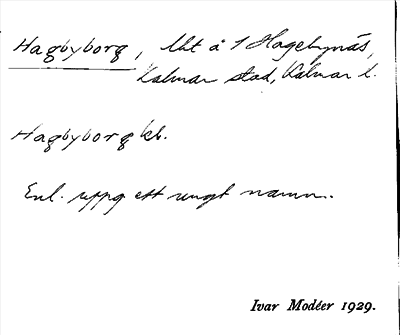 Hagbyborg, lht å 1 Hagebynäs,
Kalmar stad, Kalmar l.
Hagbyborg kl.
Enl. uppg ett ungt namn.
Ivar Modéer 1929.